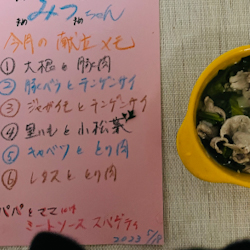 みつちゃん
今月の献立メモ
① 大根と豚肉
② 豚バラとチンゲンサイ
③ ジャガイモとチンゲンサイ
④ 里いもと小松菜
⑤ キャベツととり肉
⑥ レタスととり肉
パパとママ
ミートソース スパゲティ
2023 7/8